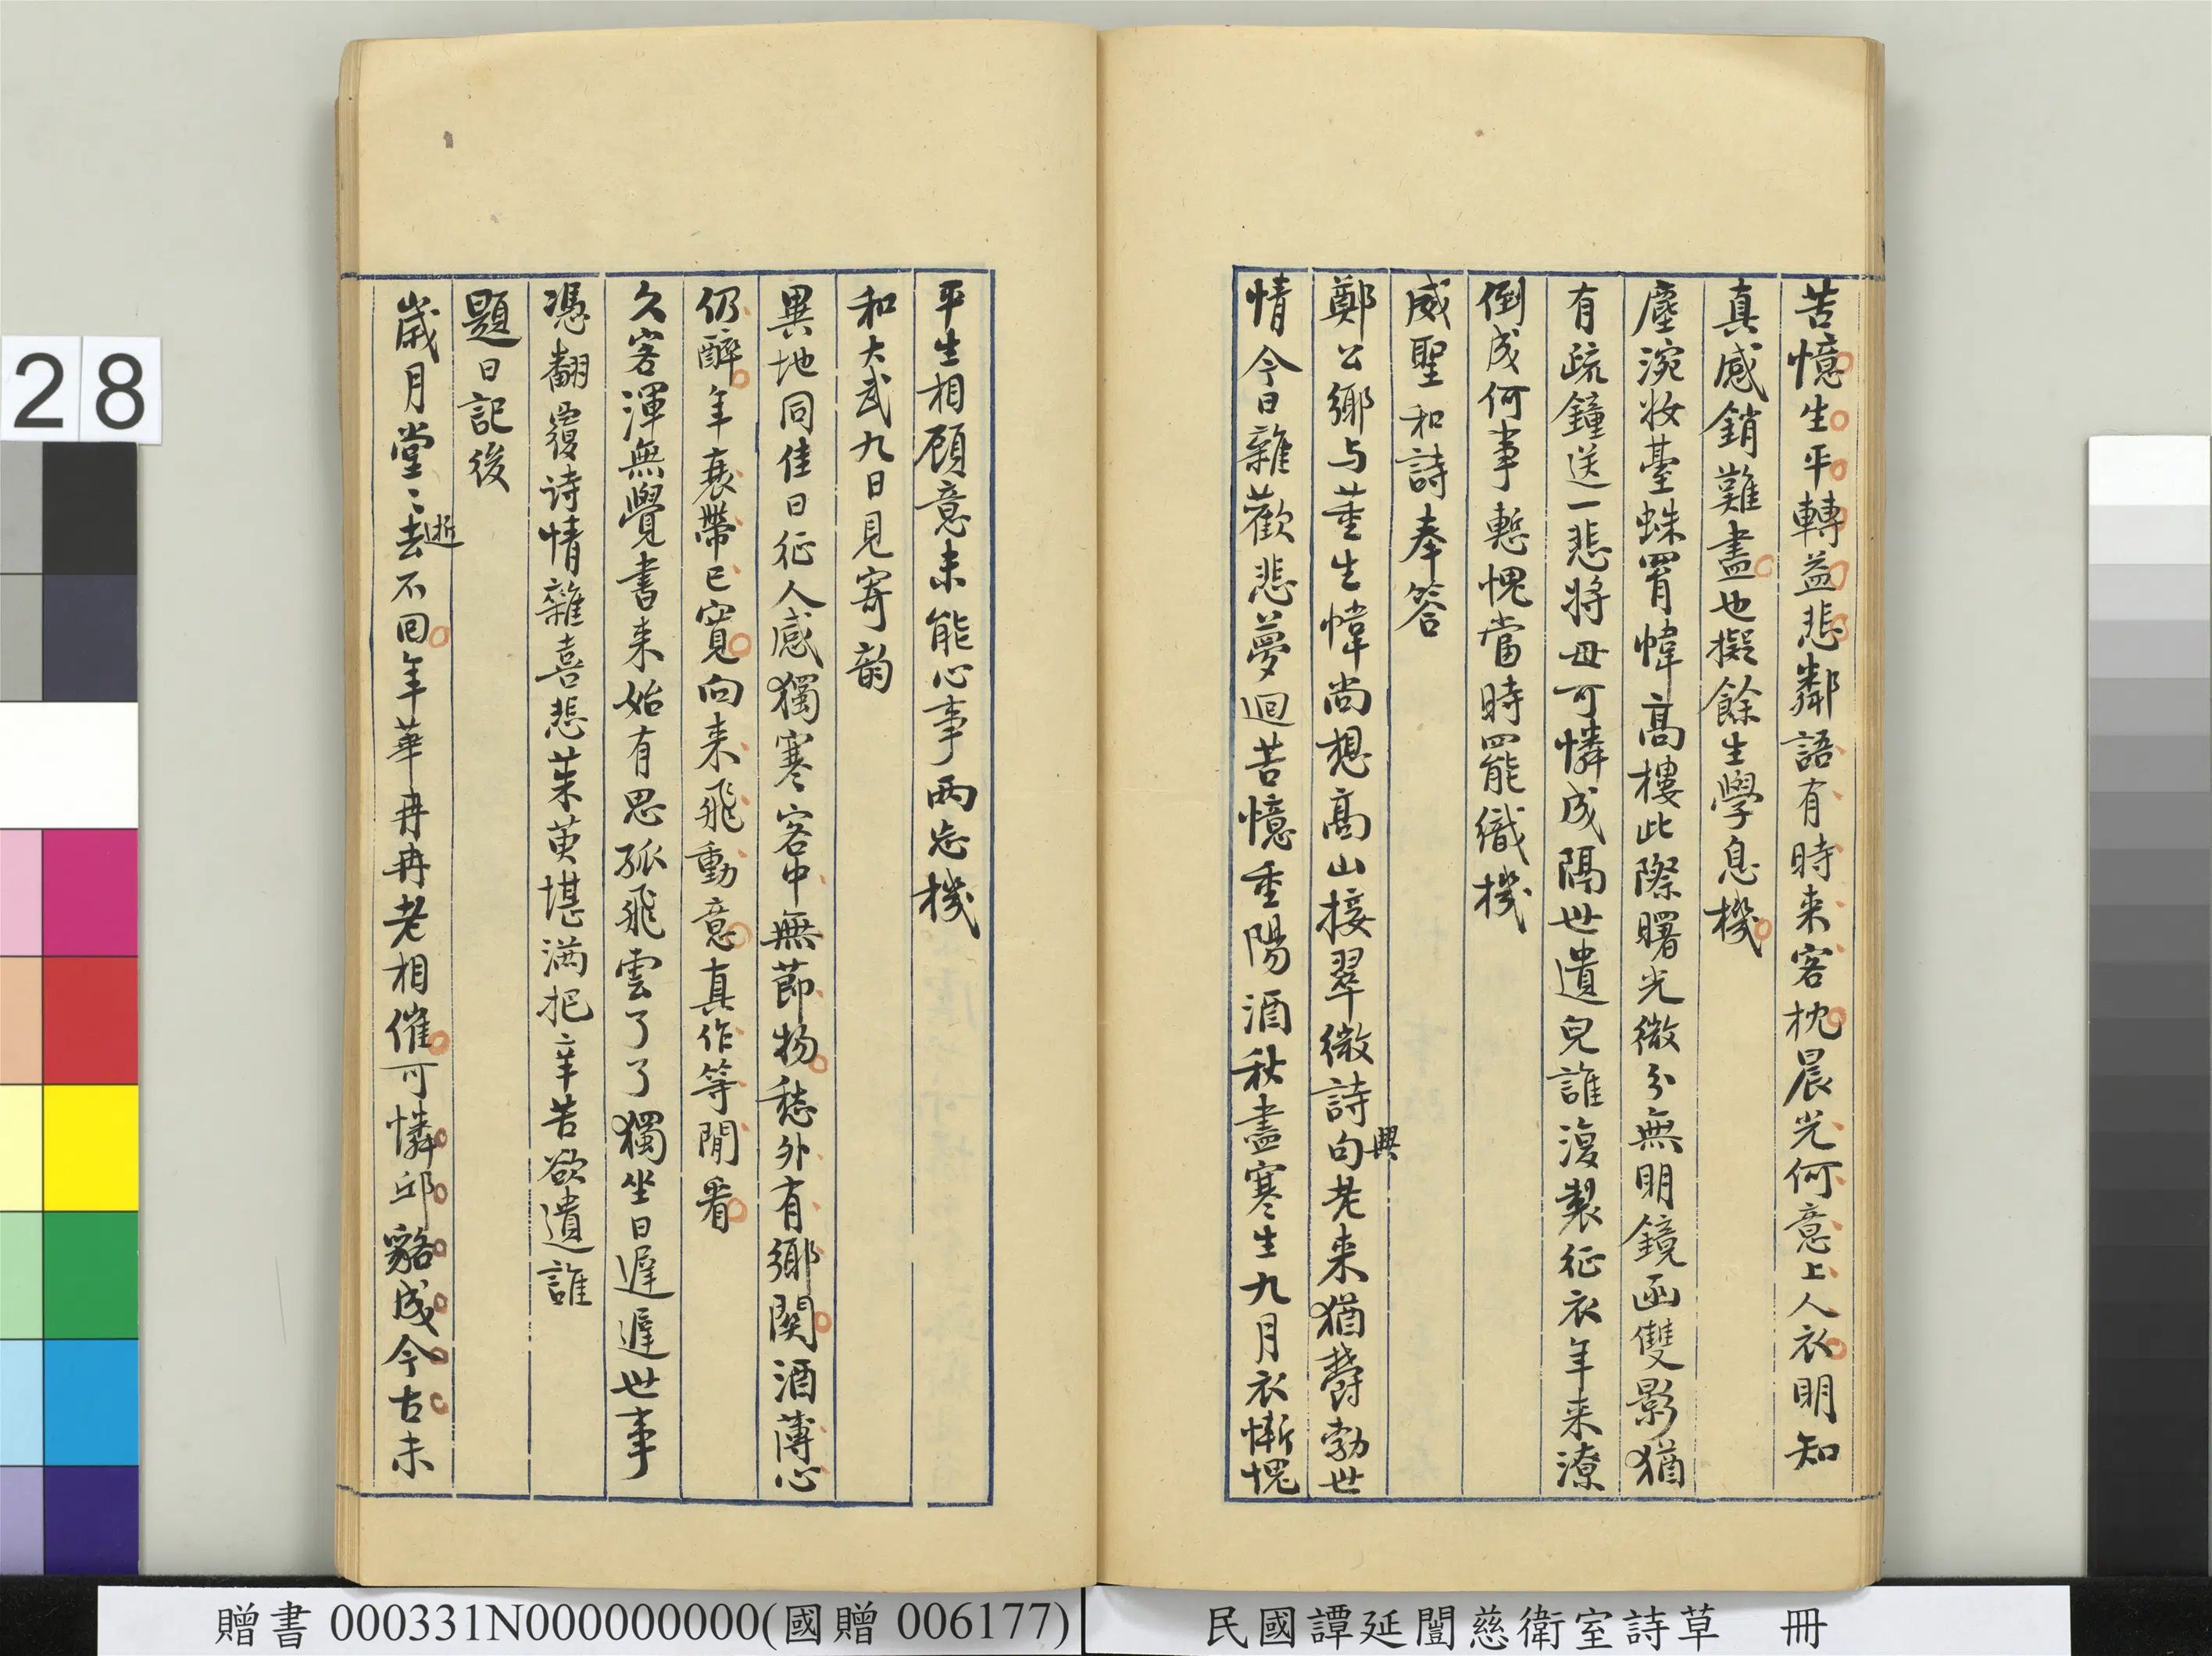 苦憶生平轉益悲鄰語有時来客枕晨光何意上人衣明知
真感銷難盡也擬餘生學息機
塵涴妝臺蛛罥幃高樓此際曙光微分無明鏡函雙影猶
有疏鐘送一悲將毋可憐成隔世遺兒誰復製征衣年来潦
倒成何事慙愧當時罷織機
咸聖和詩奉答
鄭公鄉与董生幃尚想高山接翠微詩句老来猶鬱勃世
興
情今日雜歡悲夢迴苦憶重陽酒秋盡寒生九月衣慚愧
平生相顧意未能心事兩忘機
和大武九日見寄韵
異地同佳日征人感獨寒客中無節物愁外有鄉関酒薄心
仍醉年衰帶已寬向来飛動意真作等閒看
久客渾無覺書来始有思孤飛雲了了獨坐日遲遲世事
憑翻覆诗情雜喜悲茱萸堪满把辛苦欲遺誰
題日記後
歲月堂〻去不回年華冉冉老相催可憐邱貉成今古未
逝
28
贈書 000331N000000000(國贈 006177)
民國譚延闓慈衛室詩草 冊